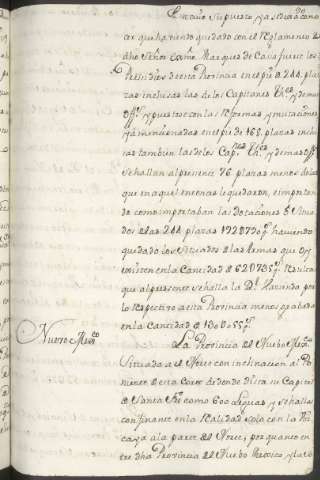 En cuyo supuesto, ya se dexa cono
cer que haviendo quedado con el Reglamento de
dho Señor Exmo Marques de Casa fuerte los
Presidios de esta Provincia en el pie de 244 pla
zas inclusas las de los Capitanes Thes y demas
Offs y puestos con las Reformas y mutaciones
ya mencionadas en el pie de 168 plazas inclu
sas tambien las de los Capnes Thes y demas Offs
se hallan al presente 76 plazas menos de las
que en aquel entonces le quedaron, e importan
do como importaban las Dotaciones o Situa
dos de las 244 plazas haviendo
quedado los Situados de las Armas que oy
existen en la Cantidad de Resulta
que al presente se halla la Rl Hacienda por
lo respectivo a esta Provincia menos grabada
en la Cantidad de
Nuevo Mexco
La Provincia del Nuebo Mexco
Situada a el Norte con inclinacion al Po
niente de esta Corte desde su Capital
de Santa Fee como 600 leguas y se halla
confinante en la Realidad solo con la Viz
caya a la parte del Norte, por quanto en
tre dha Provincia del Nuebo Mexico y la de